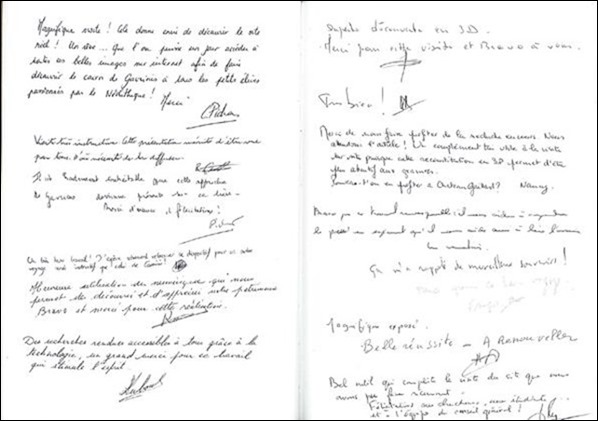 Magnifique visite ! Cela donne envie de découvrir le site
réel ! Un rêve ... que l'on puisse un jour accéder à
toutes ces belles images sur internet afin de faire
découvrir le cairn de Gavrinis à tous les petits élèves
passionnés par le Néolithique ! Merci
Visite très instructive cette présentation mérite d'être vue
par tous. D'où nécessité de les diffuser.
Il est hautement souhaitable que cette approche
de Gavrinis devienne présente sur ce lieu.
Merci d'avance et félicitations !
Un très beau travail ! J'espère vraiment
Heureuse utilisation du numérique qui nous
permet de découvrir et d'apprécier notre patrimoine
Bravo et merci pour cette réalisation.
Des recherches rendues accessibles à tous grâce à la
technologie, un grand merci pour ce travail
qui stimule l'esprit.
Superbe découverte en 3D.
Merci pour cette visite et Bravo à vous.
Très bien !
Merci de nous faire profiter de la recherche en cours. Nous
attendons l'article ! Un complément très utile à la visite
sur site puisque cette accentuation en 3D permet d'être
plus attentif aux gravures.
Nancy
Bravo pour ce travail remarquable
le passé en espérant qu'il nous aide aussi à
Ça m'a rappelé de merveilleux souvenirs !
Magnifique exposé.
Belle réussite - A Renouveller
Bel outil qui complète la visite du site que nous
avons pu faire récemment.
Félicitations aux chercheurs, aux étudiants
et à l'équipe du conseil général !